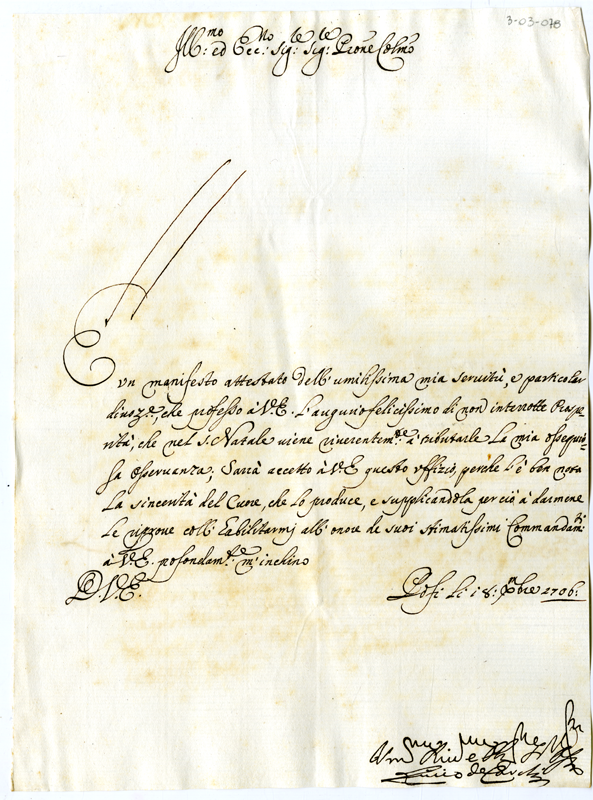 3-03-078
Ill:mo ed Ecc:mo Sig:re Sig:re Prone Colmo
È un manifesto attestato dell'umilissima mia servitù, e particolar
divoz:ne, che professo à V.E. l'augurio felicissimo di non interrotte Prospe
rità, che nel S. Natale viene riverentem:te à tributarle La mia ossequio=
sa osservanza; Sarà accetto à V.E. questo offizio, perche L'è ben nota
La sincerità del Cuore, che Lo produce, e supplicandola perciò à darmene
Le riprove coll'abilitarmj all'onore de suoi stimatissimi Commandam:ti
à V.E. profondam:te m'inchino
D. V.E.
Li 18: Xmbre 1706:
Um